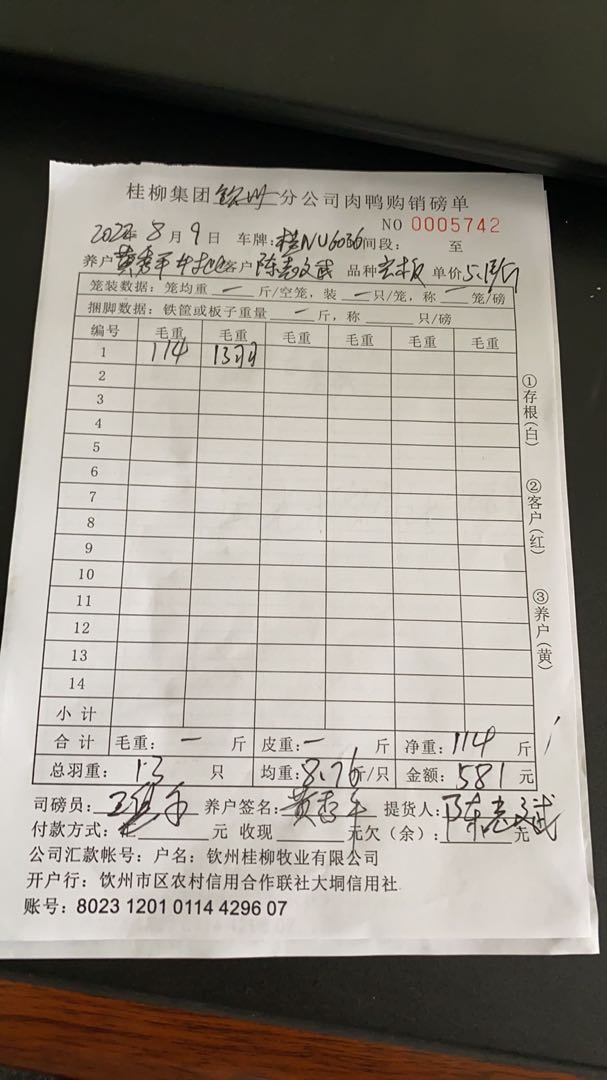 桂柳集团钦州分公司肉鸭购销磅单
NO 0005742
2022年8月9日 车牌:桂NU6036间段: 至
养户黄秀平 客户陈志文武 品种 单价5.1/斤
笼装数据: 笼均重 一 斤/空笼, 装 一 只/笼, 称 笼/磅
捆脚数据: 铁筐或板子重量 一 斤, 称 只/磅
编号 毛重 毛重 毛重 毛重 毛重 毛重
1 114 13羽
2
3
4
5
6
7
8
9
10
11
12
13
14
小 计
合 计 毛重: 一 斤 皮重: 一 斤 净重: 114 斤
总羽重: 13 只 均重: 8.76斤/只 金额: 581 元
司磅员: 养户签名: 黄秀平 提货人: 陈志文武
付款方式: 元 收现 元欠(余): 元
公司汇款帐号: 户名: 钦州桂柳牧业有限公司
开户行: 钦州市区农村信用合作联社大垌信用社
账号: 8023 1201 0114 4296 07
①存根(白)
②客户(红)
③养户(黄)